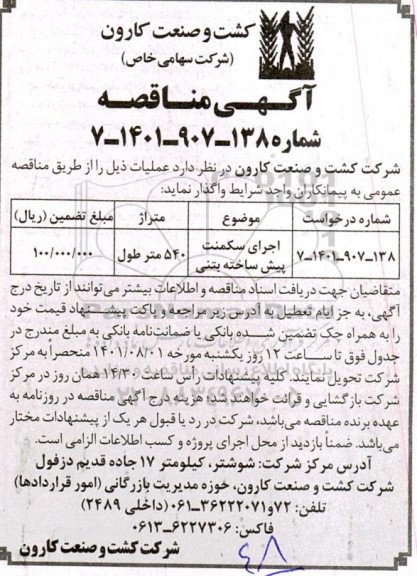 کشت و صنعت کارون
(شرکت سهامی خاص)
آگهی مناقصه
شماره ۱۳۸-۹۰۷-۱۴۰۱-۷
شرکت کشت و صنعت کارون در نظر دارد عملیات ذیل را از طریق مناقصه
عمومی به پیمانکاران واجد شرایط واگذار نماید:
شماره درخواست موضوع متراژ مبلغ تضمین (ریال)
۱۳۸-۹۰۷-۱۴۰۱-۷ اجرای سکمنت پیش ساخته بتنی ۵۴۰ متر طول ۱۰۰/۰۰۰/۰۰۰
متقاضیان جهت دریافت اسناد مناقصه و اطلاعات بیشتر می‌توانند از تاریخ درج
آگهی، به جز ایام تعطیل به آدرس زیر مراجعه و پاکت پیشنهاد قیمت خود
را به همراه چک تضمین شده بانکی یا ضمانت‌نامه بانکی به مبلغ مندرج در
جدول فوق تا ساعت ۱۲ روز یکشنبه مورخه ۱۴۰۱/۰۸/۰۱ منحصراً به مرکز
شرکت تحویل نمایند. کلیه پیشنهادات راس ساعت ۱۴/۳۰ همان روز در مرکز
شرکت بازگشایی و قرائت خواهند شد؛ هزینه درج آگهی مناقصه در روزنامه به
عهده برنده مناقصه می‌باشد، شرکت در رد یا قبول هر یک از پیشنهادات مختار
می‌باشد. ضمناً بازدید از محل اجرای پروژه و کسب اطلاعات الزامی است.
آدرس مرکز شرکت: شوشتر، کیلومتر ۱۷ جاده قدیم دزفول
شرکت کشت و صنعت کارون، حوزه مدیریت بازرگانی (امور قراردادها)
تلفن: ۷۲و۳۶۲۲۲۰۷۱-۰۶۱ (داخلی ۲۴۸۹)
فاکس: ۶۲۲۷۳۰۶-۰۶۱۳
شرکت کشت و صنعت کارون
۴۸